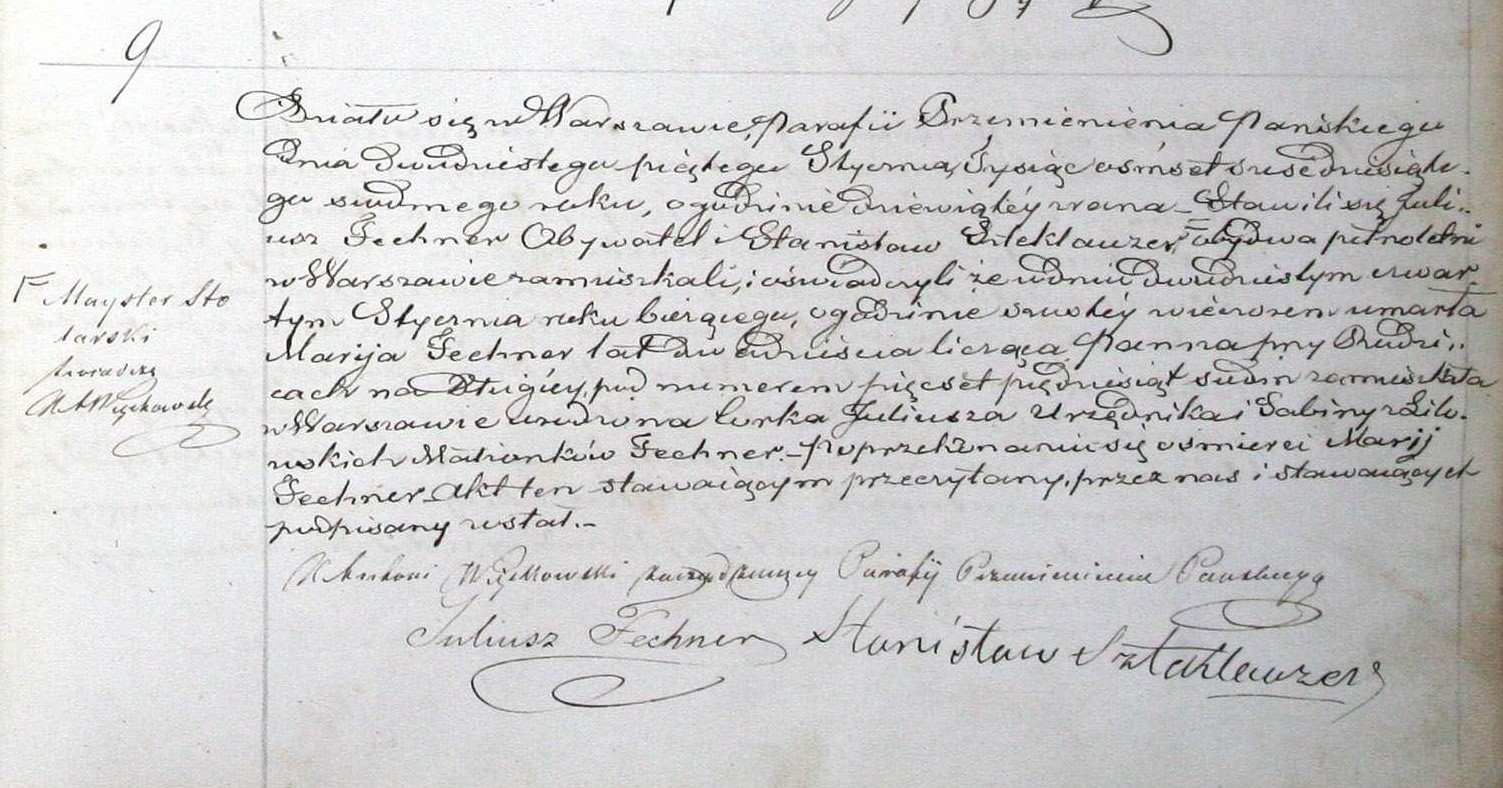 9
Działo się w Warszawie, Parafii Przemienienia Pańskiego
Dnia dwudziestego piątego Stycznia, Tysiąc ośmset sześdziesiąte-
go siudmego roku, o godzinie dziewiątéy zrana – Stawili się Juli-
usz Fechner Obywatel i Stanisław Szteklauzer, obydwa pełnoletni
w Warszawie zamiszkali, i oświadczyli że w dniu dwudziestym czwar-
tym Stycznia roku bierzącego, o godzinie szustéy wieczorem umarła
Marija Fechner lat dwadzieścia licząca, Panna przy Rodzi-
cach na Długiéy, pod numerem pięcset piędziesiąt siudm zamiszkała
w Warszawie urodzona Curka Juliusza Urzędnika i Sabiny z
wskich Małżonków Fechner. – Po przekonaniu się o śmierci Marij
Fechner Akt ten stawaiącym przeczytany, przez nas i stawaiących
podpisany został. –
Γ Mayster Sto
larski
X A Więckowski
X Antoni Więckowski Parafij Przemienienia Panskiego
Juliusz Fechner Stanisław Sztaklauzer